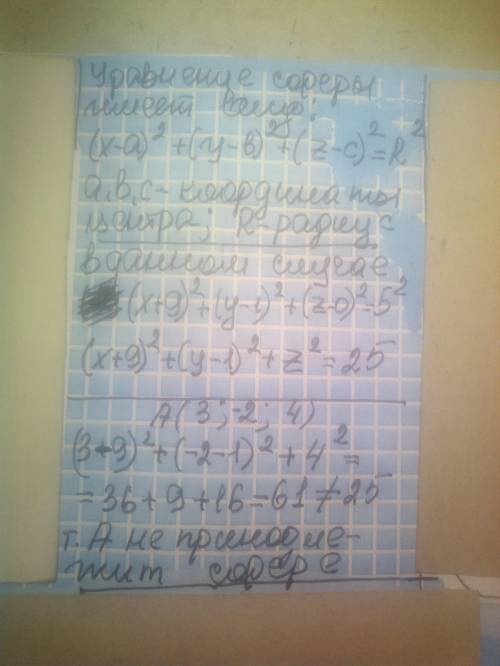 Уравнение сферы
имеет вид:
(x-a)² + (y-b)² + (z-c)² = R²
a, b, c - координаты
центра; R-радиус
в данном случае
(x+9)² + (y-1)² + (z-0)² = 5²
(x+9)² + (y-1)² + z² = 25
A(3; -2; 4)
(3-9)² + (-2-1)² + 4² =
= 36 + 9 + 16 = 61 ≠ 25
т. А не принадле-
жит сфере